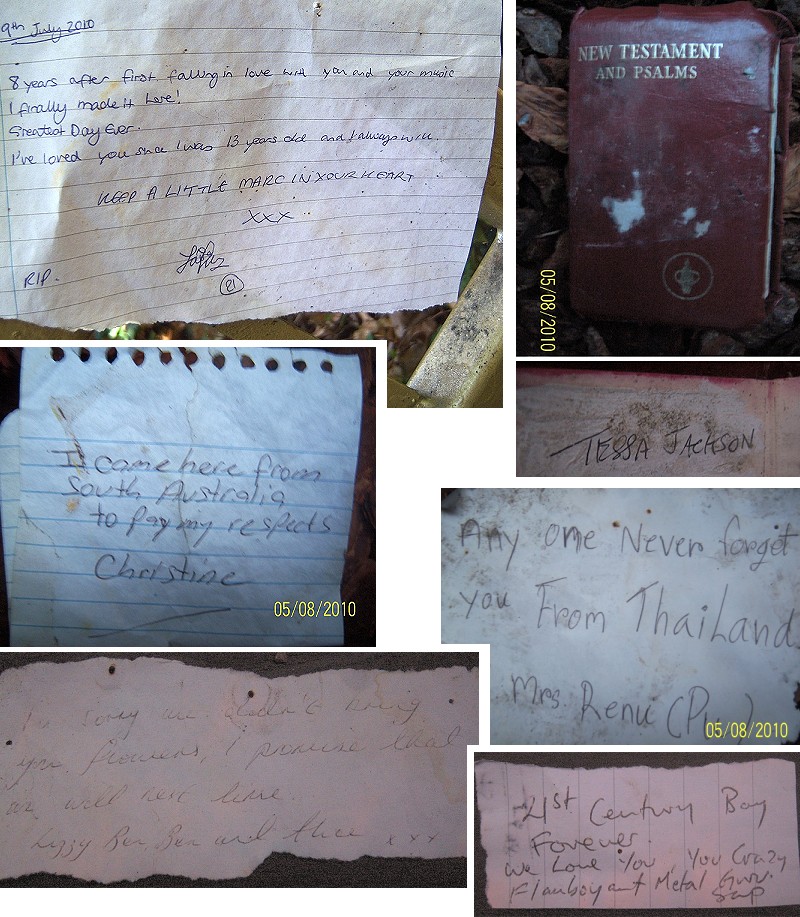 9th July 2010
8 years after first falling in love with you and your music
I finally made it here!
Greatest Day Ever.
I've loved you since I was 13 years old and I always will.
KEEP A LITTLE MARC IN YOUR HEART
xxx
21
RIP.
NEW TESTAMENT
AND PSALMS
05/08/2010
TESSA JACKSON
I came here from
South Australia
to pay my respects
Christine
05/08/2010
Any one Never forget
you From Thailand
Mrs. Renu
05/08/2010
I'm sorry we didn't bring
you flowers, I promise that
we will next time.
Lizzy Ben and Alice xxx
21st Century Boy
Forever.
We Love You, You Crazy
Flamboyant Metal Guru.